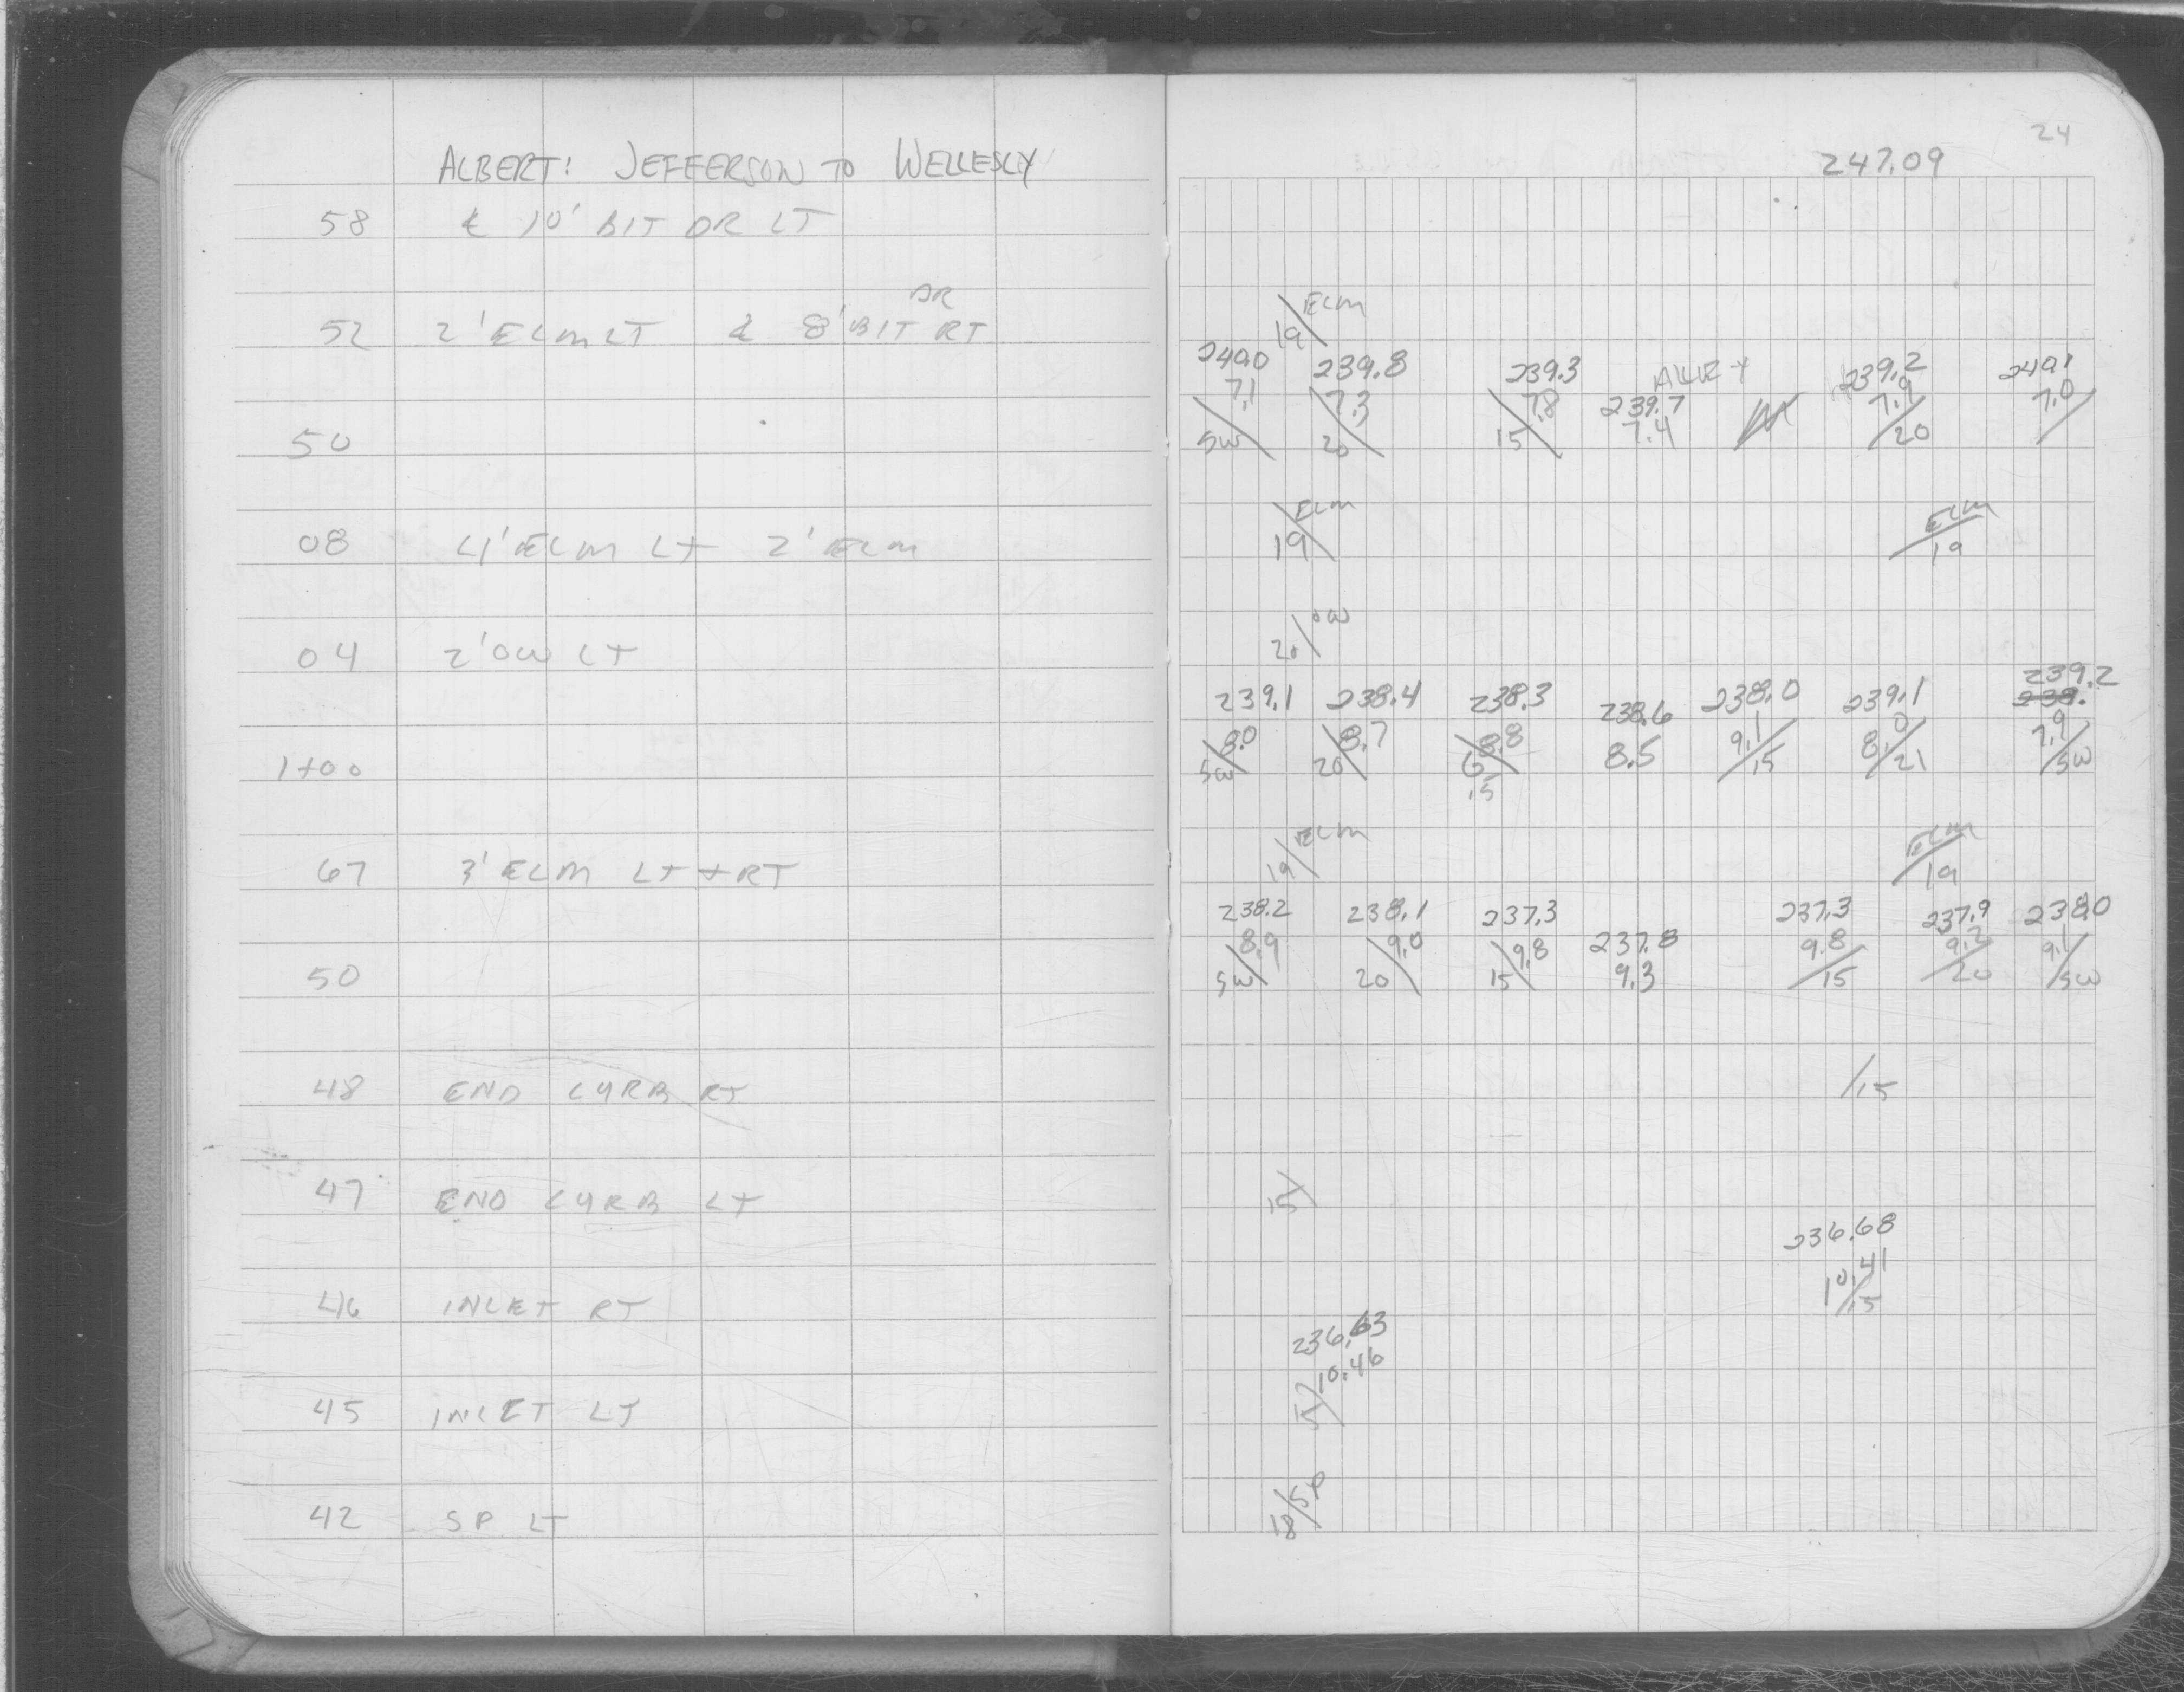 ALBERT: JEFFERSON TO WELLESLY
58 ℄ 10' BIT DR LT
DR
52 2' ELM LT ℄ 8' BIT RT
50
08 4' ELM LT 2' ELM
04 2' OW LT
1+00
67 3' ELM LT + RT
50
48 END CURB RT
47 END CURB LT
46 INLET RT
45 INLET LT
42 SP LT
24
247.09
ELM
19
240.0 239.8 239.3 ALLEY 239.2 240.1
7.1 7.3 7.8 239.7 7.9 7.0
SW 20 15 7.4 20
ELM ELM
19 19
OW
20
239.2
239.1 238.4 238.3 238.6 238.0 239.1 238.
8.0 8.7 8.8 8.5 9.1 8.0 7.9
SW 20 G 15 21 SW
15
ELM ELM
19 19
238.2 238.1 237.3 237.8 237.3 237.9 238.0
8.9 9.0 9.8 9.3 9.8 9.2 9.1
SW 20 15 15 20 SW
15
15
236.68
10.41
15
236.63
10.46
15
18/SP